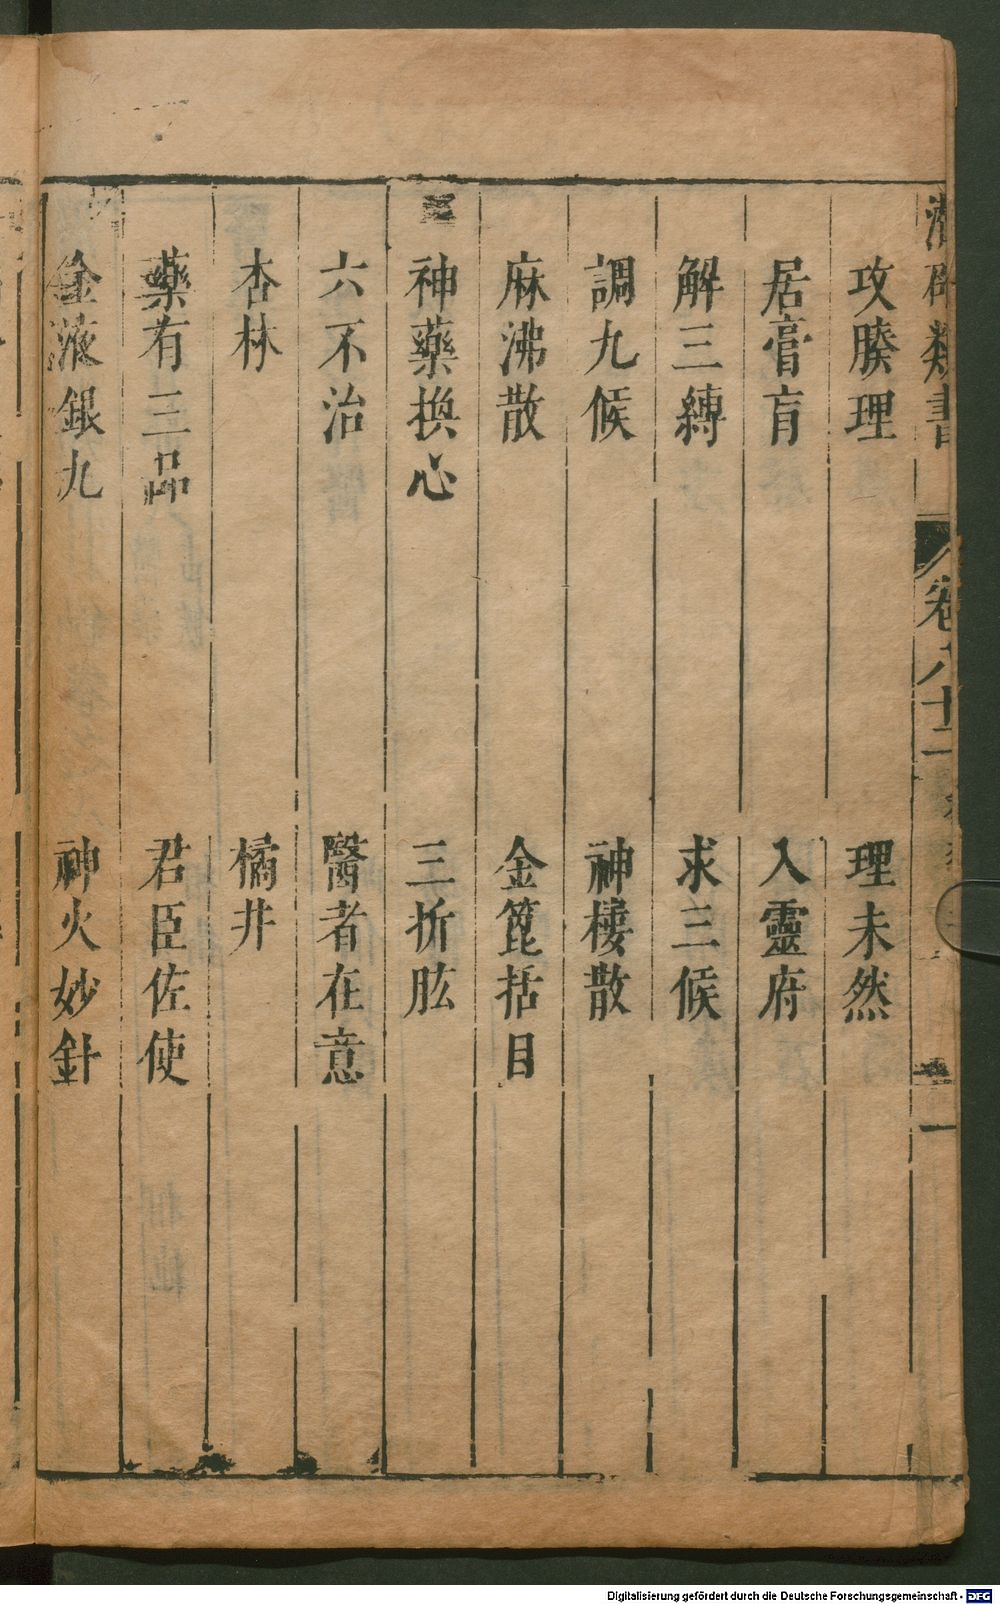 類書
卷八十二
一
攻腠理
理未然
居膏肓
入靈府
解三縛
求三候
調九候
神樓散
麻沸散
金篦括目
神藥換心
三折肱
六不治
醫者在意
杏林
橘井
藥有三品
君臣佐使
金液銀九
神火妙針
Digitalisierung gefördert durch die Deutsche Forschungsgemeinschaft - DFG